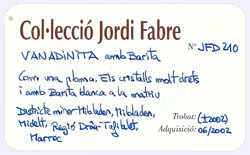 Col·lecció Jordi Fabre
VANADINITA amb Barita
Nº JFD 210
Com una ploma. Els cristalls molt drets
i amb Barita blanca a la matriu
Districte miner Mibladen, Mibladen,
Midelt, Regió Drâa-Tafilalet,
Marroc
Trobat: (±2002)
Adquisició: 06/2002